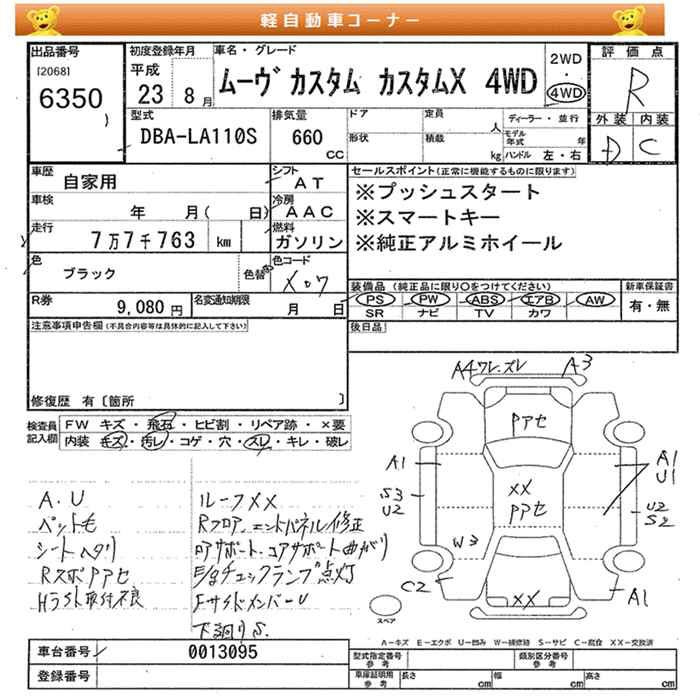 軽自動車コーナー
出品番号
[2068]
6350
初度登録年月
平成
23 8月
車名・グレード
ムーヴ カスタム カスタムX 4WD
2WD
・
4WD
評価点
R
外装 内装
D C
型式
DBA-LA110S
排気量
660
CC
ドア
形状
定員
人
積載
kg
ディーラー・並行
モデル年式 年
ハンドル 左・右
車歴
自家用
シフト
AT
車検
年 月( 日)
冷房
AAC
走行
7万7千763 km
燃料
ガソリン
色
ブラック
色替
色コード
X07
R券
9,080円
名変通知期限
月 日
セールスポイント(正常に機能するものに限ります)
※プッシュスタート
※スマートキー
※純正アルミホイール
装備品(純正品に限り○をつけてください)
PS PW ABS エアB AW
SR ナビ TV カワ
新車保証書
有・無
注意事項申告欄(不具合内容等は具体的に記入して下さい)
後日品
修復歴 有〔箇所 〕
検査員記入欄
FW キズ・飛石・ヒビ割・リペア跡・×要
内装 キズ・汚レ・コゲ・穴・スレ・キレ・破レ
A.U
ペット毛
シートヘタリ
RスポPアセ
Hライト取付不良
ルーフXX
Rフロア、エンドパネル修正
コアサポート曲がり
E/gチェックランプ点灯
FサイドメンバーU
下廻りS
A4ワレ.ズレ
A3
Pアセ
A1
S3
U2
XX
Pアセ
A1
U1
U2
S2
W3
C2
XX
A1
スペア
A−キズ E−エクボ U−凹み W−補修跡 S−サビ C−腐食 XX−交換済
車台番号
0013095
登録番号
型式指定番号
参考
類別区分番号
参考
車庫証明用
参考
長さ cm
幅 cm
高さ cm